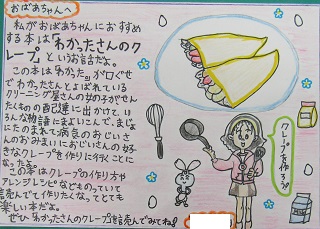 おばあちゃんへ
私がおばあちゃんにおすすめ
する本は「わかったさんのク
レープ」というお話だよ。
この本は「わかった」が口ぐせ
でわかったさんとよばれている
クリーニング屋さんの女の子がせん
たくものの配達に出かけて、いろ
んな物語にまよいこんで、まじょ
にたのまれて病気のおじいさ
んのおみまいにおじいさんの好
きなクレープを作りに行くことに
なったよ。
この本はクレープの作り方や
アレンジレシピなどものっていて
読んでて作りたくなってとても
楽しい本だよ。
ぜひ「わかったさんのクレープ」を読んでみてね!
クレープを作ろう!